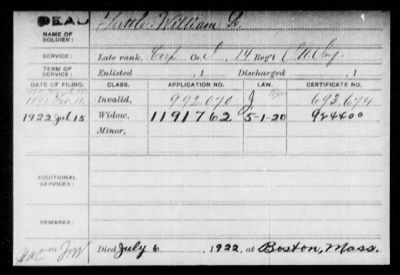 DEAD
NAME OF SOLDIER: Tuttle William
SERVICE: Late rank, Corp Co. I, 14 Reg't
TERM OF SERVICE: Enlisted , 1 Discharged , 1
DATE OF FILING. CLASS. APPLICATION NO. LAW. CERTIFICATE NO.
Invalid, 992.070 692.674
1922 Jul 15 Widow, 1191762 5-1-20 924400
Minor,
ADDITIONAL SERVICES:
REMARKS:
Died July 6, 1922, at Boston, Mass.